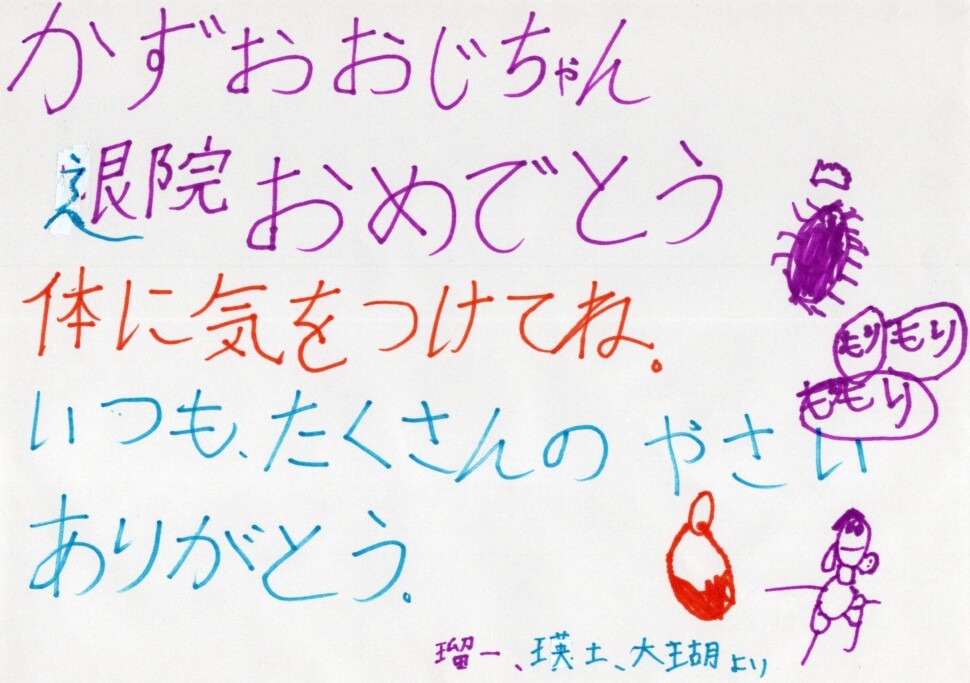 かずおおじちゃん
退院おめでとう
体に気をつけてね。
もりもり
ももり
いつも、たくさんの やさい
ありがとう。
瑠一、瑛士、大瑚より